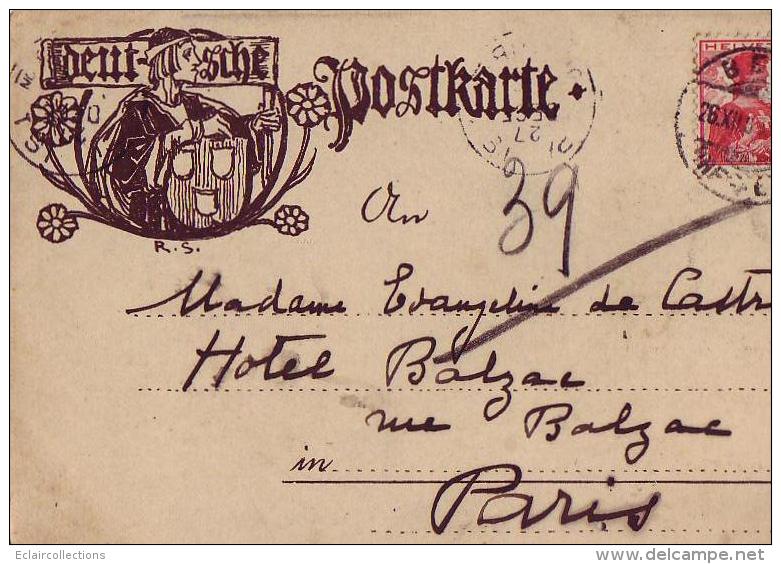 deut-sche
Postkarte
HELVE
26.XII.0
27
R.S.
An
39
Madame Evangeline de Castr
Hotel Balzac
rue Balzac
in
Paris
Eclaircollections
www.delcampe.net